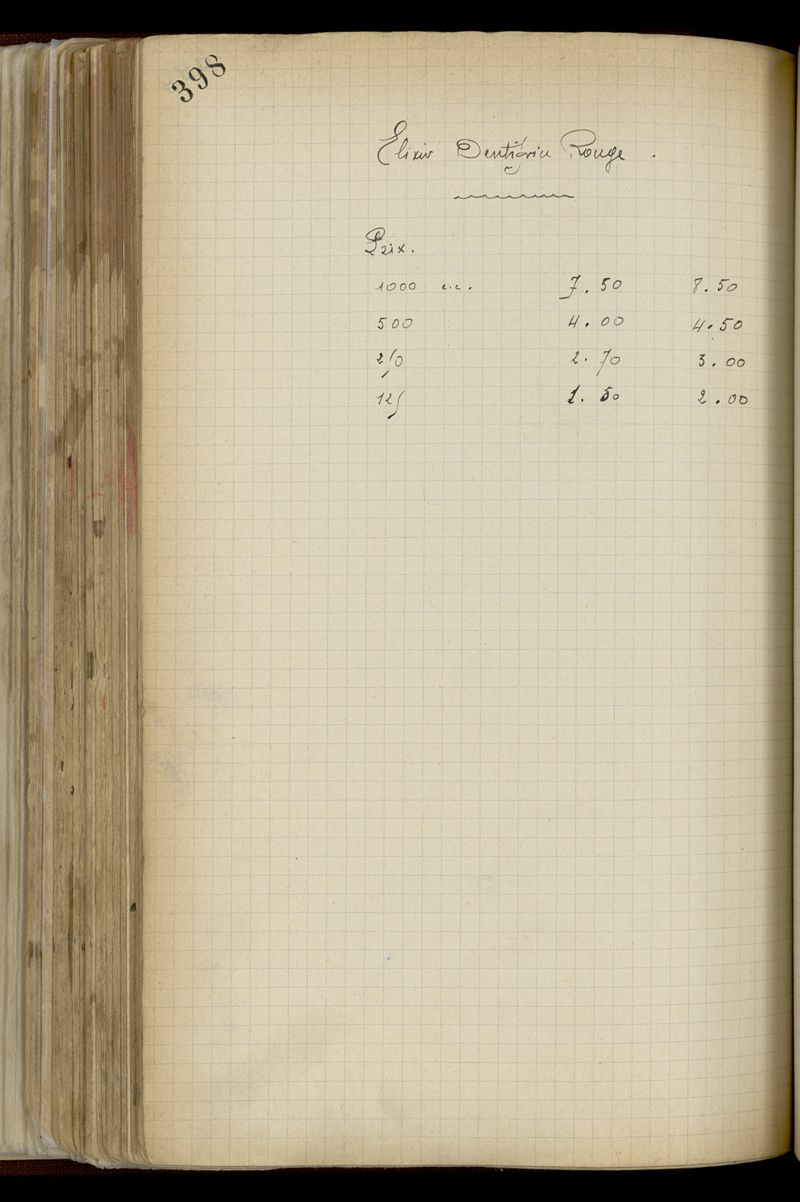 398
Elixir Dentifrice Rouge.
Prix.
1000 c.c. 7.50 8.50
500 4.00 4.50
250 2.70 3.00
125 1.50 2.00